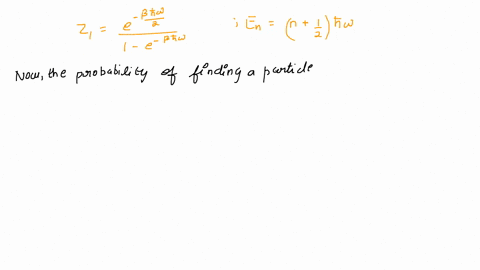 Z₁ = e^(-βħω/2) / (1 - e^(-βħω)) ; Eₙ = (n + 1/2) ħω
Now, the probability of finding a particle